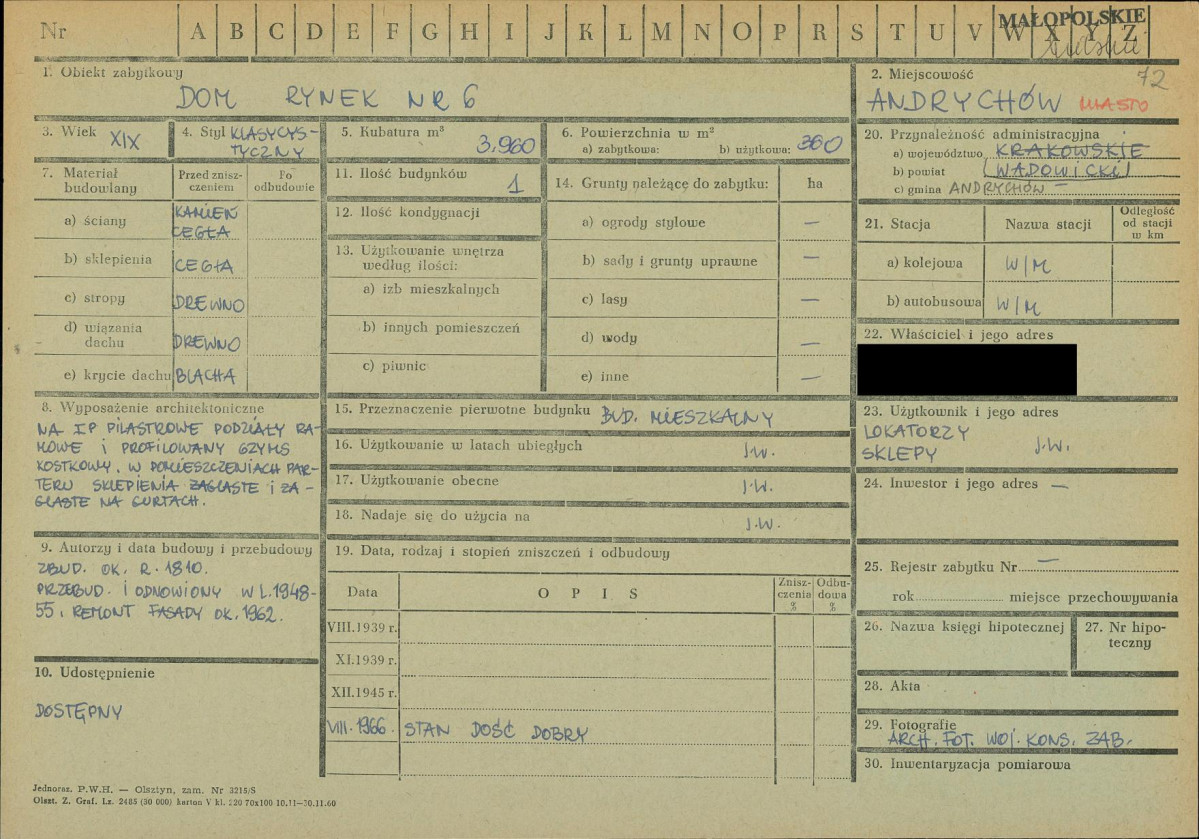 Nr A B C D E F G H I J K L M N O P R S T U V W X Y Z
MAŁOPOLSKIE
1. Obiekt zabytkowy
DOM RYNEK NR 6
2. Miejscowość 72
ANDRYCHÓW MIASTO
3. Wiek XIX
4. Styl KLASYCYS-
TYCZNY
5. Kubatura m³
3.960
6. Powierzchnia w m²
a) zabytkowa: b) użytkowa: 360
20. Przynależność administracyjna
a) województwo KRAKOWSKIE
b) powiat WADOWICKI
c) gmina ANDRYCHÓW –
7. Materiał
budowlany
Przed znisz-
czeniem
Po
odbudowie
a) ściany KAMIEŃ
CEGŁA
b) sklepienia CEGŁA
c) stropy DREWNO
d) wiązania
dachu DREWNO
e) krycie dachu BLACHA
11. Ilość budynków
1
12. Ilość kondygnacji
13. Użytkowanie wnętrza
według ilości:
a) izb mieszkalnych
b) innych pomieszczeń
c) piwnic
14. Grunty należące do zabytku: ha
a) ogrody stylowe –
b) sady i grunty uprawne –
c) lasy –
d) wody –
e) inne –
21. Stacja Nazwa stacji Odległość
od stacji
w km
a) kolejowa W/M
b) autobusowa W/M
22. Właściciel i jego adres
8. Wyposażenie architektoniczne
NA IP PILASTROWE PODZIAŁY RA-
MOWE I PROFILOWANY GZYMS
KOSTKOWY. W POMIESZCZENIACH PAR-
TERU SKLEPIENIA ŻAGLASTE I ŻA-
GLASTE NA GURTACH.
15. Przeznaczenie pierwotne budynku BUD. MIESZKALNY
16. Użytkowanie w latach ubiegłych J.W.
17. Użytkowanie obecne J.W.
18. Nadaje się do użycia na J.W.
23. Użytkownik i jego adres
LOKATORZY
SKLEPY J.W.
24. Inwestor i jego adres –
9. Autorzy i data budowy i przebudowy
ZBUD. OK. R. 1810.
PRZEBUD. I ODNOWIONY W L. 1948-
55, REMONT FASADY OK. 1962.
19. Data, rodzaj i stopień zniszczeń i odbudowy
Data O P I S Znisz-
czenia
% Odbu-
dowa
%
VIII.1939 r.
XI.1939 r.
XII.1945 r.
VIII.1966. STAN DOŚĆ DOBRY
25. Rejestr zabytku Nr –
rok miejsce przechowywania
26. Nazwa księgi hipotecznej
27. Nr hipo-
teczny
28. Akta
29. Fotografie
ARCH. FOT. WOJ. KONS. ZAB.
30. Inwentaryzacja pomiarowa
10. Udostępnienie
DOSTĘPNY
Jednoraz. P.W.H. — Olsztyn, zam. Nr 3215/S
Olszt. Z. Graf. Lz. 2485 (30 000) karton V kl. 220 70x100 10.11—30.11.60